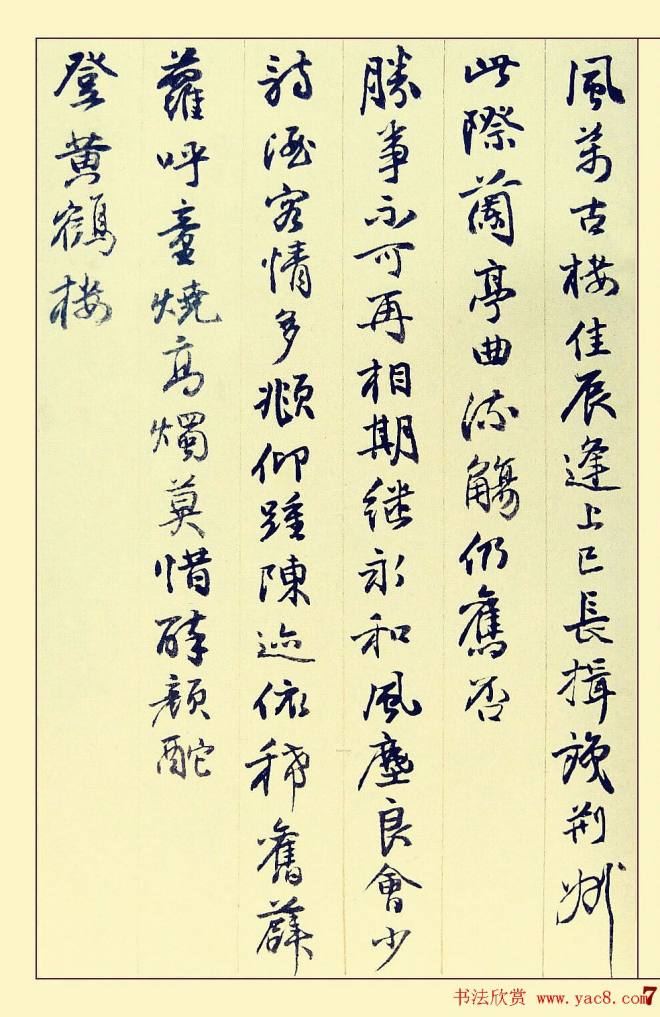 風萬古樓佳辰逢上巳長揖謝荆州
此際蘭亭曲流觴仍舊否
勝事不可再相期繼永和風塵良會少
詩酒客情多頫仰踵陳迹依稀舊薜
蘿呼童燒高燭莫惜醉顏酡
登黄鶴樓
书法欣赏 www.yac8.com
7